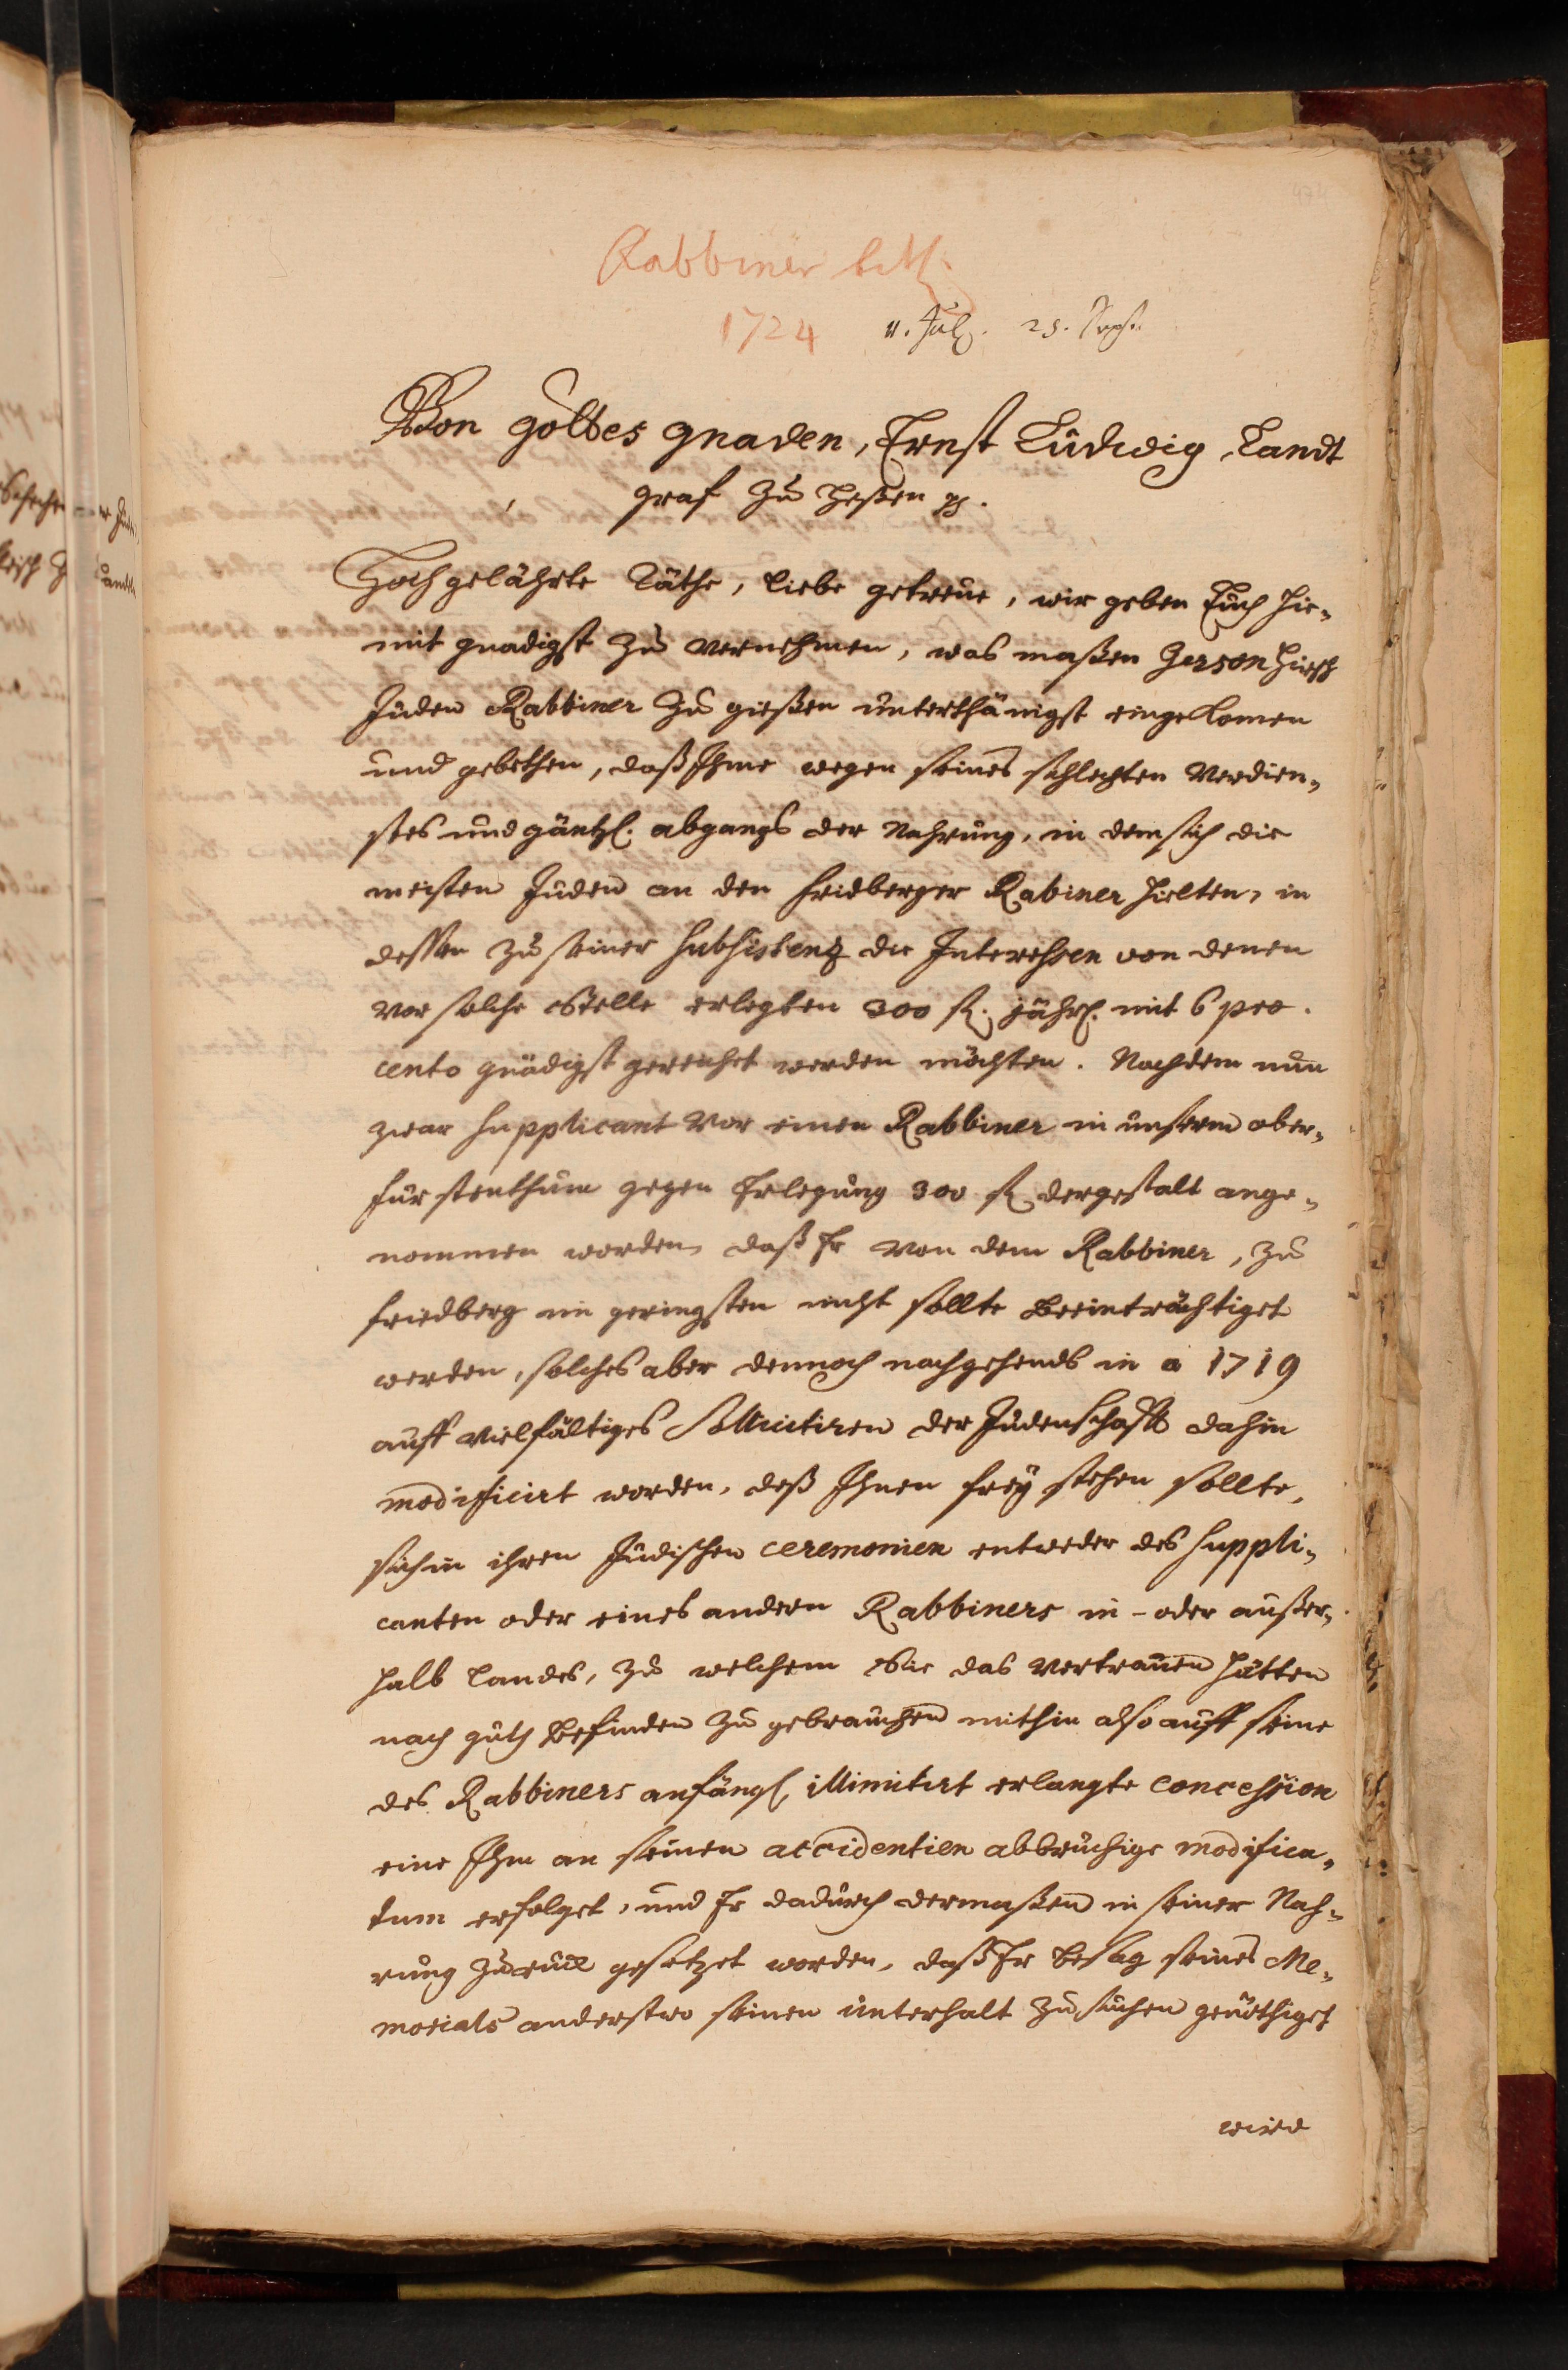 Rabbiner betr.
1724 11. Jul. 25. Sept.
Von Gottes gnaden, Ernst Ludwig, Landt
graf zu Heßen pp.
Hochgelährte Räthe, liebe getreue, wir geben Euch hie-
mit gnädigst zu vernehmen, was maßen Gerson Hirsch
Juden Rabbiner zu gießen unterthänigst eingekomen
und gebethen, daß Ihme wegen seines schlechten Verdien-
stes und gäntzl. abgangs der Nahrung, in dem sich die
meisten Juden an den Fridberger Rabiner hielten, in
dessen zu seiner Subsistenz die Interessen von denen
vor solche Stelle erlegten 300 fl. jährl. mit 6 pro.
cento gnädigst gereichet werden möchten. Nachdem nun
zwar Supplicant vor einen Rabbiner in unserm ober-
fürstenthum gegen Erlegung 300 fl. dergestalt ange-
nommen worden, daß Er von dem Rabbiner, zu
friedberg im geringsten nicht sollte beeinträchtiget
werden, solches aber dennoch nachgehends in a 1719
auff vielfältiges Sollicitiren der Judenschafft dahin
modificirt worden, daß Ihnen frey stehen sollte,
sich in ihren Jüdischen ceremonien entweder des Suppli-
canten oder eines andern Rabbiners in- oder außer-
halb Landes, zu welchem Sie das Vertrauen hätten
nach guth befinden zu gebrauchen mithin also auff seine
des Rabbiners anfängl. illimitirt erlangte concession
eine Ihm an seinen accidentien abbrüchige modifica-
tum erfolget, und Er dadurch dermaßen in seiner Nah-
rung zurück gesetzet worden, daß Er besag seines Me-
morials anderstwo seinen unterhalt zu suchen genöthiget
wird